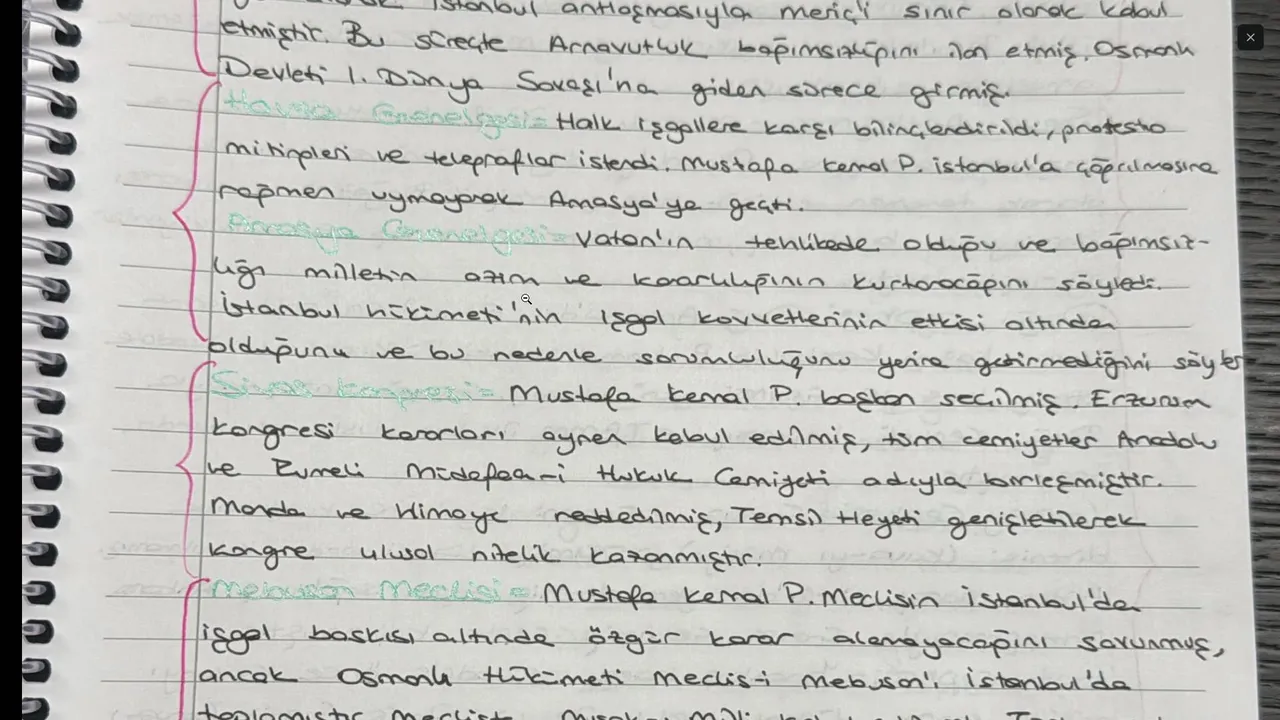 İstanbul antlaşmasıyla meriç'i sınır olarak kabul
etmiştir. Bu süreçte Arnavutluk bağımsızlığını ilan etmiş. Osmanlı
Devleti 1. Dünya Savaşı'na giden sürece girmiş.
Havza Genelgesi = Halk işgallere karşı bilinçlendirildi, protesto
mitingleri ve telegraflar istendi. Mustafa Kemal P. İstanbul'a çağrılmasına
rağmen uymayarak Amasya'ya geçti.
Amasya Genelgesi = Vatan'ın tehlikede olduğu ve bağımsız-
lığı milletin azim ve kararlılığının kurtaracağını söyledi.
İstanbul hükümeti'nin işgal kuvvetlerinin etkisi altından
olduğunu ve bu nedenle sorumluluğunu yerine getirmediğini söyler
Sivas Kongresi = Mustafa Kemal P. başkan seçilmiş. Erzurum
kongresi kararları aynen kabul edilmiş, tüm cemiyetler Anadolu
ve Rumeli Müdafaa-i Hukuk Cemiyeti adıyla birleşmiştir.
Manda ve Himaye reddedilmiş, Temsil Heyeti genişletilerek
kongre ulusal nitelik kazanmıştır.
Mebusan Meclisi = Mustafa Kemal P. Meclisin İstanbul'da
işgal baskısı altında özgür karar alamayacağını savunmuş,
ancak Osmanlı Hükümeti Meclis-i Mebusan'ı İstanbul'da
toplamıştır Mecliste